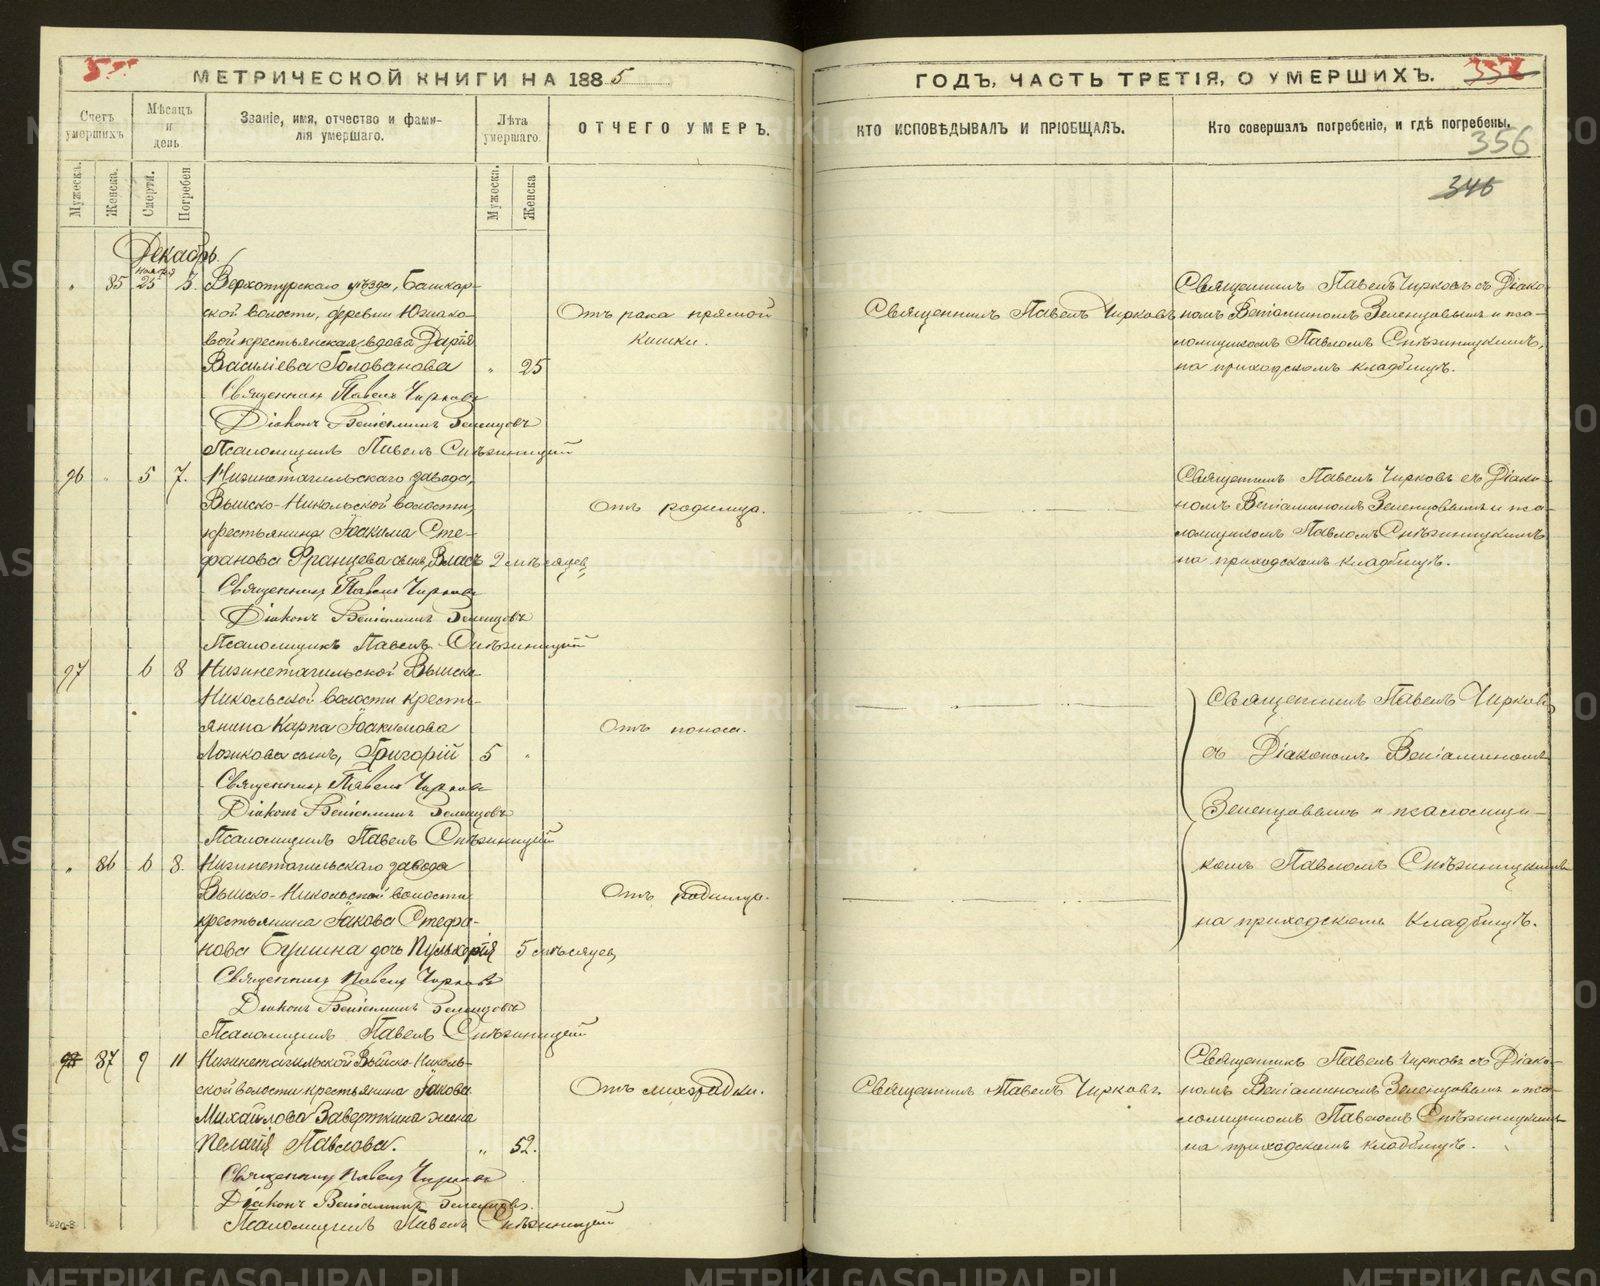 МЕТРИЧЕСКОЙ КНИГИ НА 1885
ГОДЪ, ЧАСТЬ ТРЕТІЯ, О УМЕРШИХЪ.
356
346
Счетъ умершихъ
Мѣсяцъ и день
Званіе, имя, отчество и фами-
лія умершаго.
Лѣта умершаго.
ОТЧЕГО УМЕРЪ.
КТО ИСПОВѢДЫВАЛЪ И ПРІОБЩАЛЪ.
Кто совершалъ погребеніе, и гдѣ погребены.
Мужеска.
Женска.
Смерти.
Погребен
Мужеска.
Женска
Декабрь
85 25
Верхотурскаго уѣзда, Башкар-
ской волости, деревни
вой крестьянская вдова Дарія
Василіева Голованова " 25
Отъ рака прямой
кишки.
Священникъ Павелъ Чирковъ
Священникъ Павелъ Чирковъ съ Діако-
номъ Веніаминомъ Зеленцовымъ и пса-
ломщикомъ Павломъ Снѣжницкимъ,
на приходскомъ кладбищѣ.
Священникъ Павелъ Чирковъ
Діаконъ Веніаминъ Зеленцовъ
Псаломщикъ Павелъ Снѣжницкій
96 " 5 7.
Нижнетагильскаго завода,
Выйско-Никольской волости
крестьянина Іоакима Сте-
фанова Францева сынъ, Власъ 2 мѣсяцев
Отъ родимца.
Священникъ Павелъ Чирковъ съ Діако-
номъ Веніаминомъ Зеленцовымъ и пса-
ломщикомъ Павломъ Снѣжницкимъ
на приходскомъ кладбищѣ.
Священникъ Павелъ Чирковъ
Діаконъ Веніаминъ Зеленцовъ
Псаломщикъ Павелъ Снѣжницкій
97 6 8
Нижнетагильской Выйско
Никольской волости кресть-
янина Карпа Іоакимова
Ложкова сынъ, Григорій 5 "
Отъ поноса.
Священникъ Павелъ Чирковъ
Діаконъ Веніаминъ Зеленцовъ
Псаломщикъ Павелъ Снѣжницкій
" 86 6 8.
Нижнетагильскаго завода
Выйско-Никольской волости
крестьянина Іакова Стефа-
нова Бушина дочь Пульхерія 5 мѣсяцев
Отъ родимца.
Священникъ Павелъ Чирковъ
съ Діакономъ Веніаминомъ
Зеленцовымъ и псаломщи-
комъ Павломъ Снѣжницкимъ
на приходскомъ кладбищѣ.
Священникъ Павелъ Чирковъ
Діаконъ Веніаминъ Зеленцовъ
Псаломщикъ Павелъ Снѣжницкій
98 87 9 11
Нижнетагильской Выйско-Николь-
ской волости крестьянина Іакова
Михайлова Заверткина жена
Пелагія Павлова. " 52.
Отъ лихорадки.
Священникъ Павелъ Чирковъ.
Священникъ Павелъ Чирковъ съ Діако-
номъ Веніаминомъ Зеленцовымъ и пса-
ломщикомъ Павломъ Снѣжницкимъ
на приходскомъ кладбищѣ.
Священникъ Павелъ Чирковъ
Діаконъ Веніаминъ Зеленцовъ.
Псаломщикъ Павелъ Снѣжницкій
METRIKI.GASO-URAL.RU